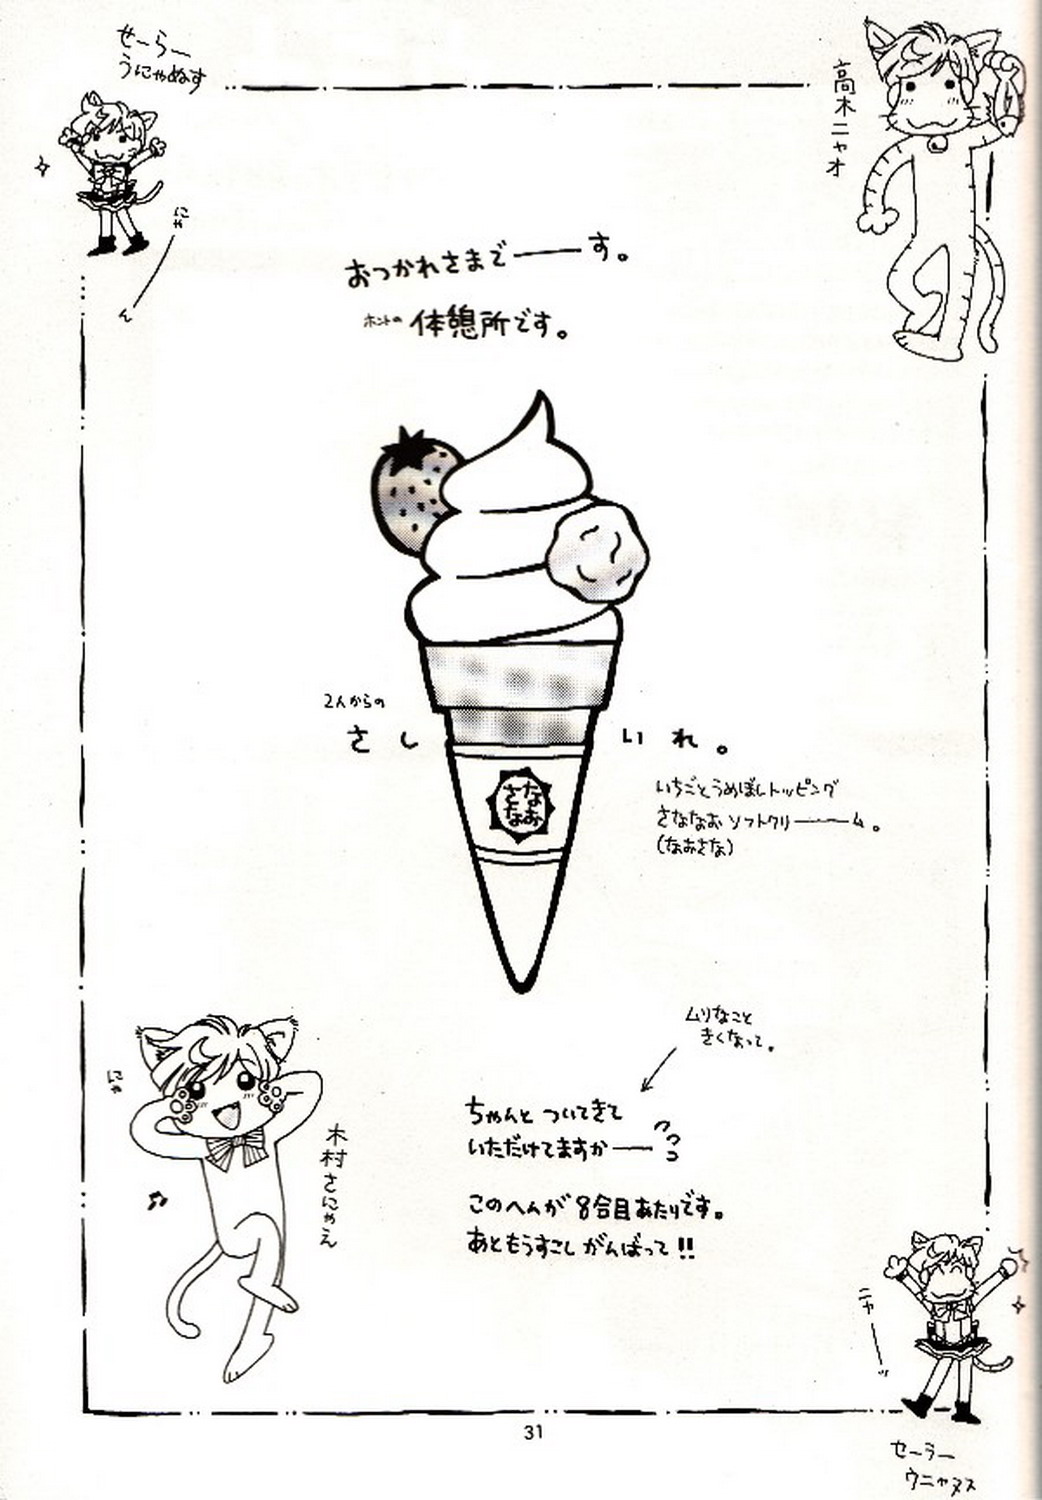 せーらー
うにゃぬす
にゃーん
高木ニャオ
おつかれさまで――す。
ホントの 体憩所です。
2人からの
さしいれ。
さな
なお
いちごとうめぼしトッピング
さななお ソフトクリ――ム。
(なおさな)
ムリなこと
きくなって。
ちゃんと ついてきて
いただけてますか――
このヘムが 8合目あたりです。
あともうすこし がんばって!!
にゃ
木村さにゃえ
ニャーッ
セーラー
ウニャヌス
31